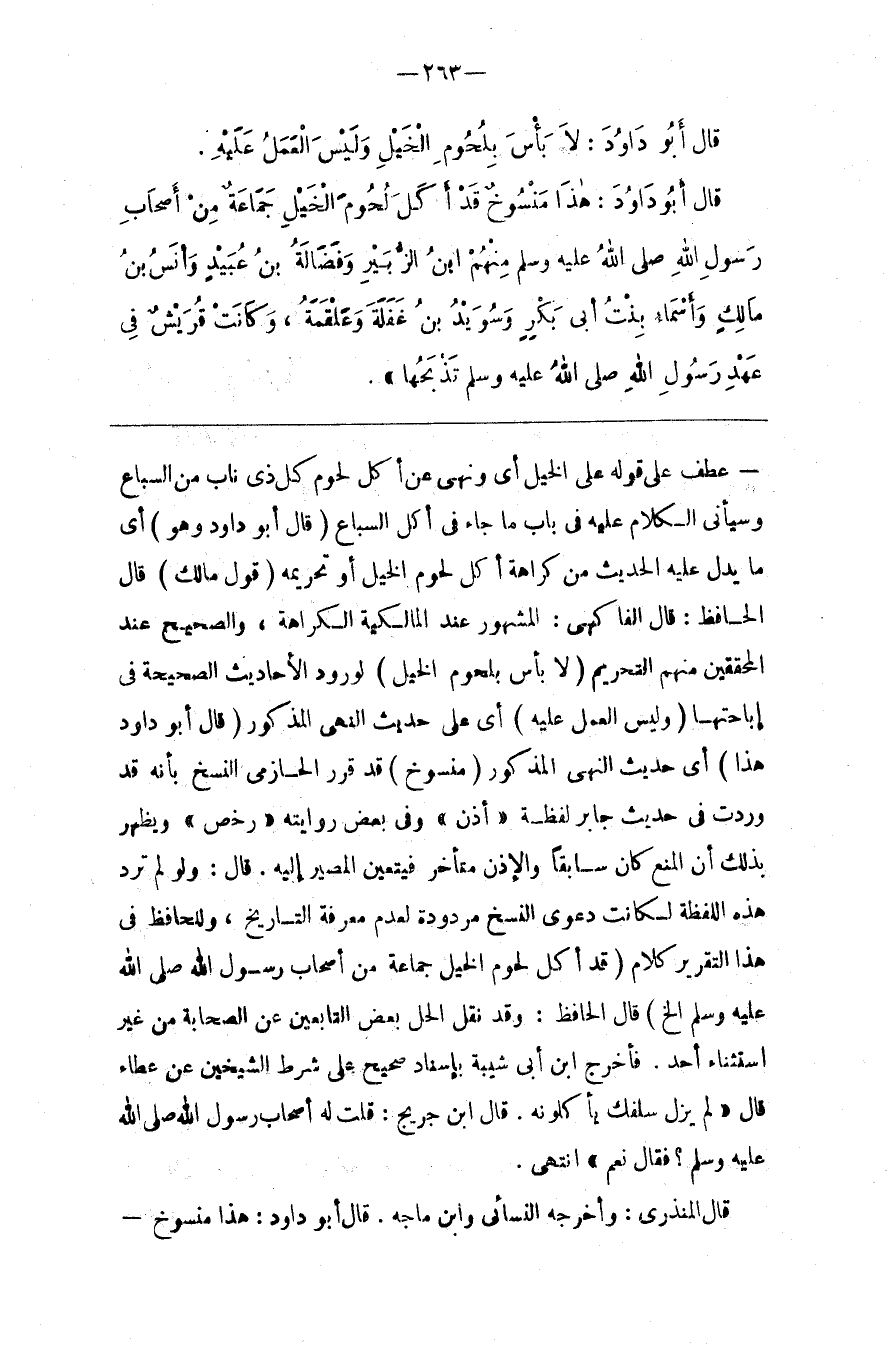 —٢٦٣—
قال أَبُو دَاوُدَ : لاَ بَأْسَ بِلُحُومِ الْخَيْلِ وَلَيْسَ الْعَمَلُ عَلَيْهِ .
قال أَبُو دَاوُدَ : هٰذَا مَنْسُوخٌ قَدْ أَكَلَ لُحُومَ الْخَيْلِ جَمَاعَةٌ مِنْ أَصحَابِ
رَسولِ اللهِ صلى اللهُ عليه وسلم مِنْهُمْ ابنُ الزُّبَيْرِ وَفَضَالَةُ بنُ عُبَيْدٍ وَأنَسُ بنُ
مَالِكٍ وَأَسْمَاءُ بِنْتُ أبى بَكْرٍ وَسُوَيْدُ بنُ غَفَلَةَ وَعَلْقَمَةُ ، وَكَانَتْ قُرَيْشٌ فِى
عَهْدِ رَسُولِ اللهِ صلى اللهُ عليه وسلم تَذْبَحُهَا » .
— عطف على قوله على الخيل أى ونهى عن أكل لحوم كل ذى ناب من السباع
وسيأتى الكلام عليه فى باب ما جاء فى أكل السباع ( قال أبو داود وهو ) أى
ما يدل عليه الحديث من كراهة أكل لحوم الخيل أو تحريمه ( قول مالك ) قال
الحافظ : قال الفاكهى : المشهور عند المالكية الكراهة ، والصحيح عند
المحققين منهم التحريم ( لا بأس بلحوم الخيل ) لورود الأحاديث الصحيحة فى
إباحتها ( وليس العمل عليه ) أى على حديث النهى المذكور ( قال أبو داود
هذا ) أى حديث النهى المذكور ( منسوخ ) قد قرر الحازمى النسخ بأنه قد
وردت فى حديث جابر لفظة « أذن » وفى بعض روايته « رخص » ويظهر
بذلك أن المنع كان سابقاً والإذن متأخر فيتعين المصير إليه . قال : ولو لم ترد
هذه اللفظة لكانت دعوى النسخ مردودة لعدم معرفة التاريخ ، وللحافظ فى
هذا التقرير كلام ( قد أكل لحوم الخيل جماعة من أصحاب رسول الله صلى الله
عليه وسلم الخ ) قال الحافظ : وقد نقل الحل بعض التابعين عن الصحابة من غير
استثناء أحد . فأخرج ابن أبى شيبة بإسناد صحيح على شرط الشيخين عن عطاء
قال « لم يزل سلفك يأكلونه . قال ابن جريج : قلت له أصحاب رسول الله صلى الله
عليه وسلم ؟ فقال نعم » انتهى .
قال المنذرى : وأخرجه النسائى وابن ماجه . قال أبو داود : هذا منسوخ —